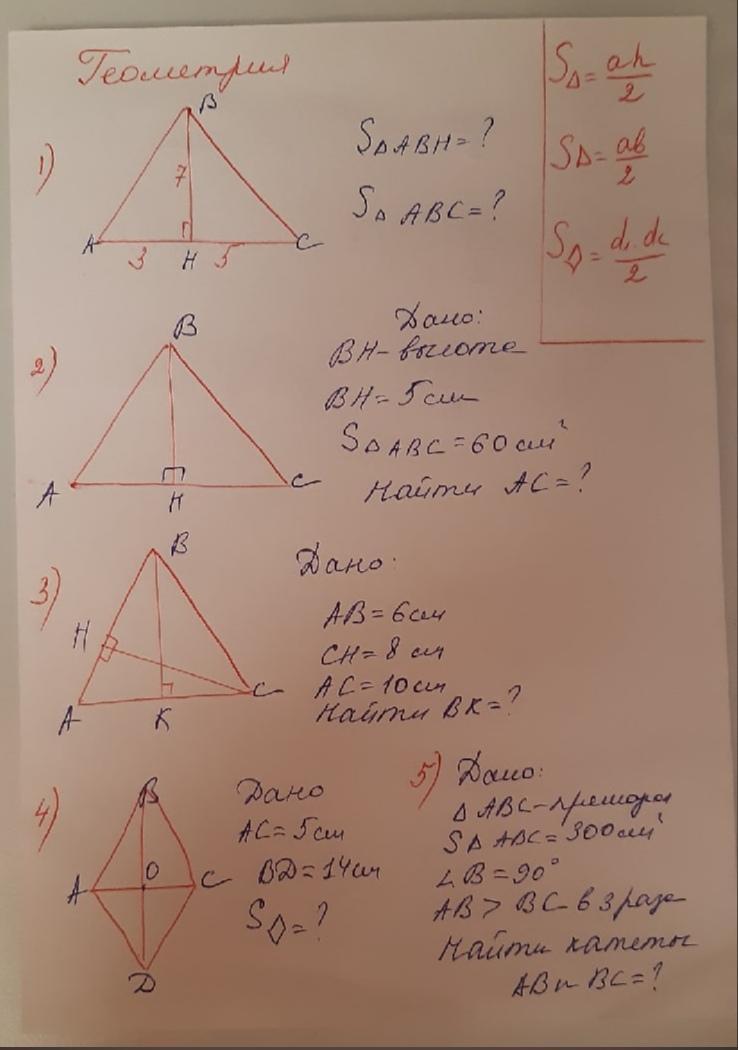 Геометрия
S△ = ah/2
S△ = ab/2
S◊ = d₁·d₂/2
1)
B
7
A
3
H
5
C
S△ABH = ?
S△ABC = ?
2)
B
A
H
C
Дано:
BH - высота
BH = 5 см
S△ABC = 60 см²
Найти AC = ?
3)
B
H
A
K
C
Дано:
AB = 6 см
CH = 8 см
AC = 10 см
Найти BK = ?
4)
B
A
O
C
D
Дано
AC = 5 см
BD = 14 см
S◊ = ?
5) Дано:
△ABC -
S△ABC = 300 см²
∠B = 90°
AB > BC в 3 раза
Найти катеты
AB и BC = ?